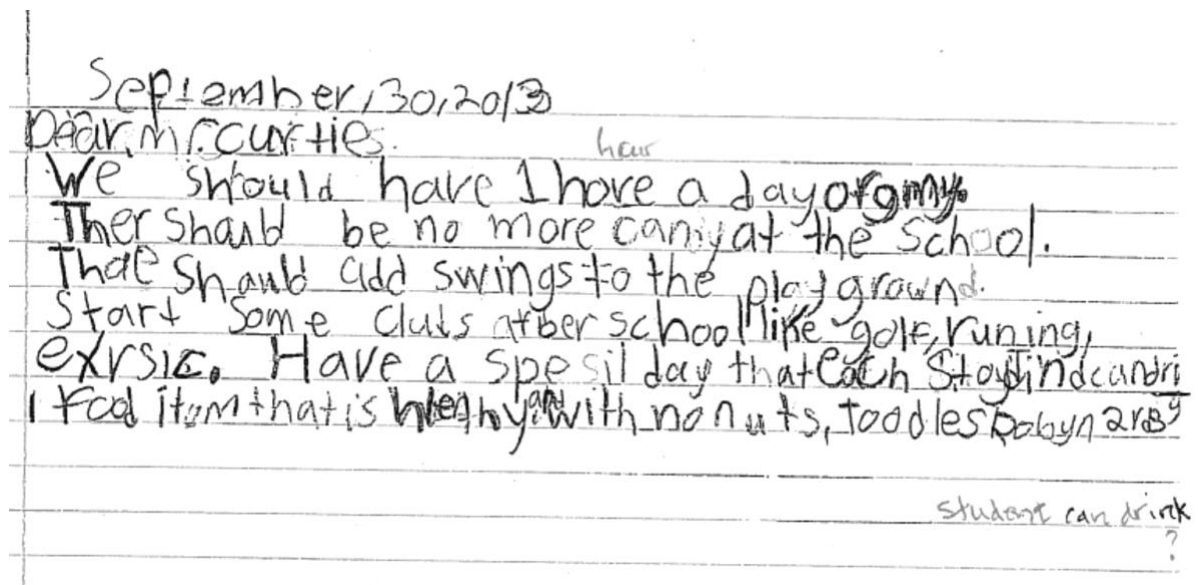 September,30,2013
Dear,mr.curties.
hour
We should have 1 hore a day of gmy.
Ther shauld be no more caniy at the school.
Thae shauld add swings to the playgrawnd.
Start Some cluds atber school like golf, runing,
exrsic. Have a spesil day that each can
1 food itom that is and with no nuts,
student can drink
?